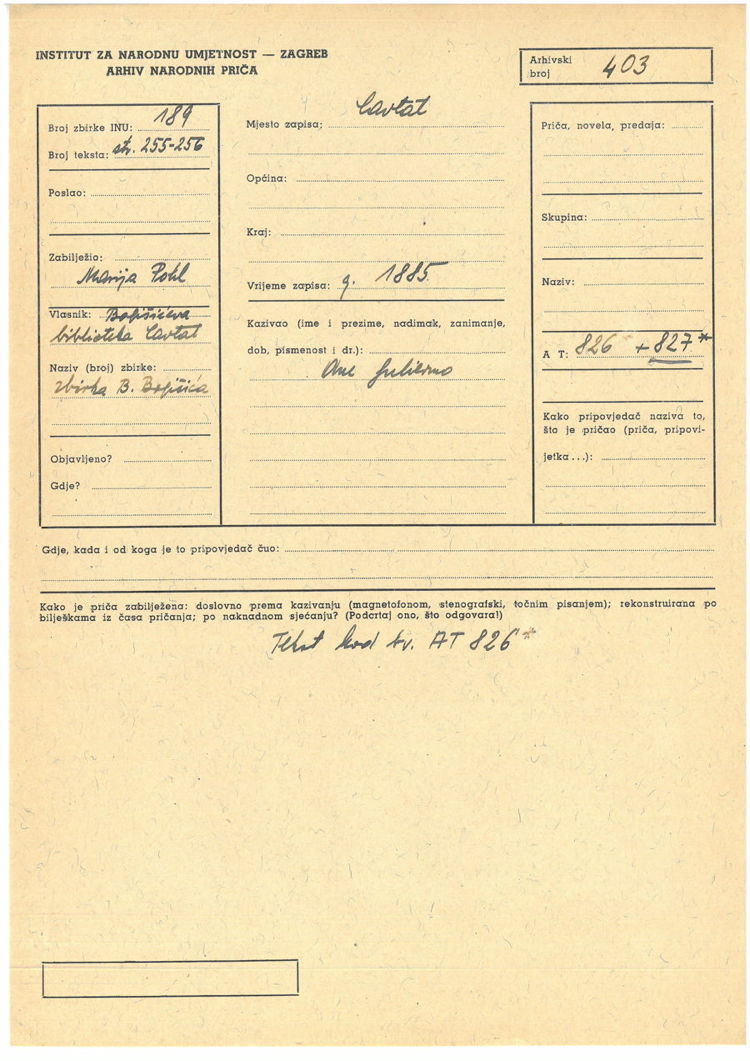 INSTITUT ZA NARODNU UMJETNOST — ZAGREB
ARHIV NARODNIH PRIČA
Arhivski
broj 403
Broj zbirke INU: 189
Broj teksta: str. 255-256
Poslao:
Zabilježio:
Marija Pohl
Vlasnik: Bogišićeva
biblioteka Cavtat
Naziv (broj) zbirke:
zbirka B. Bogišića
Objavljeno?
Gdje?
Mjesto zapisa: Cavtat
Općina:
Kraj:
Vrijeme zapisa: g. 1885
Kazivao (ime i prezime, nadimak, zanimanje,
dob, pismenost i dr.):
Ane
Priča, novela, predaja:
Skupina:
Naziv:
A T: 826 + 827*
Kako pripovjedač naziva to,
što je pričao (priča, pripovi-
jetka...):
Gdje, kada i od koga je to pripovjedač čuo:
Kako je priča zabilježena: doslovno prema kazivanju (magnetofonom, stenografski, točnim pisanjem); rekonstruirana po
bilješkama iz časa pričanja; po naknadnom sjećanju? (Podcrtaj ono, što odgovara!)
Tekst kod br. AT 826*